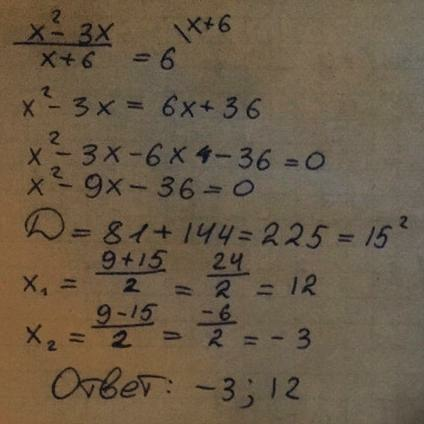 x² - 3x / x+6 = 6 \x+6
x² - 3x = 6x + 36
x² - 3x - 6x - 36 = 0
x² - 9x - 36 = 0
D = 81 + 144 = 225 = 15²
x₁ = 9+15 / 2 = 24 / 2 = 12
x₂ = 9-15 / 2 = -6 / 2 = -3
Ответ: -3; 12